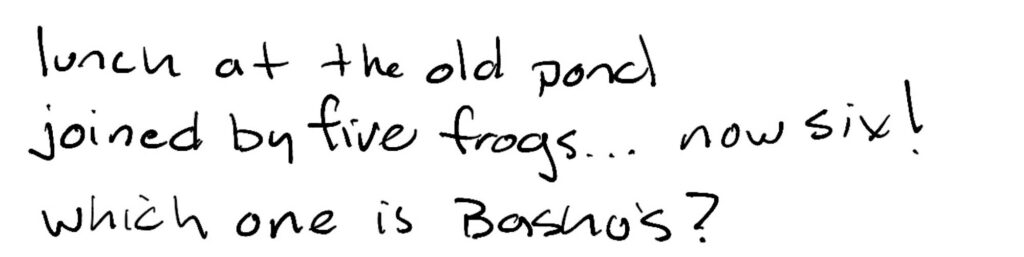 lunch at the old pond
joined by five frogs... now six!
which one is Basho's?